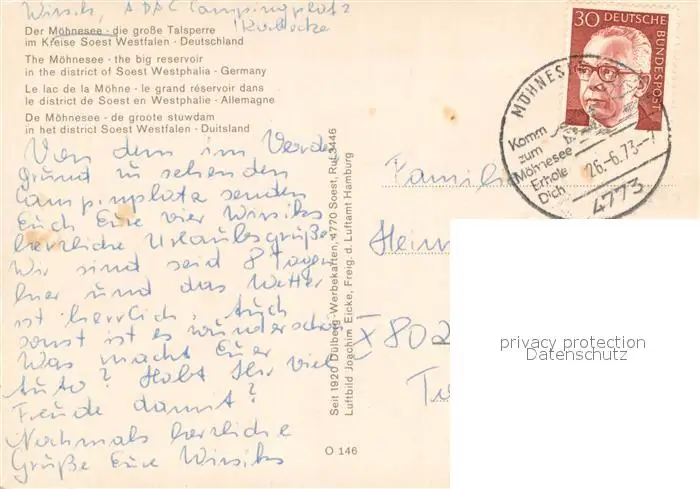 Wirsiks, ADAC Campingplatz
Körbecke
Der Möhnesee - die große Talsperre
im Kreise Soest Westfalen - Deutschland
The Möhnesee - the big reservoir
in the district of Soest Westphalia - Germany
Le lac de la Möhne - le grand réservoir dans
le district de Soest en Westphalie - Allemagne
De Möhnesee - de groote stuwdam
in het district Soest Westfalen - Duitsland
Von dem im Vorder
grund zu sehenden
Campingplatz senden
Euch Eure vier Wirsiks
herzliche Urlaubsgrüße
Wir sind seid 8 Tagen
hier und das Wetter
ist herrlich. Auch
sonst ist es wunderschön
Was macht Euer
Auto? Habt Ihr viel
Freude damit?
Nochmals herzliche
Grüße Eure Wirsiks
Seit 1920 Dülberg-Werbekarten, 4770 Soest, Ruf 3446
Luftbild Joachim Eicke, Freig. d. Luftamt Hamburg
O 146
30 DEUTSCHE
BUNDESPOST
MÖHNESEE
Komm
zum
Möhnesee
Erhole
Dich
26.-6.73.-7
4773
Familie
Hein
X 802
privacy protection
Datenschutz